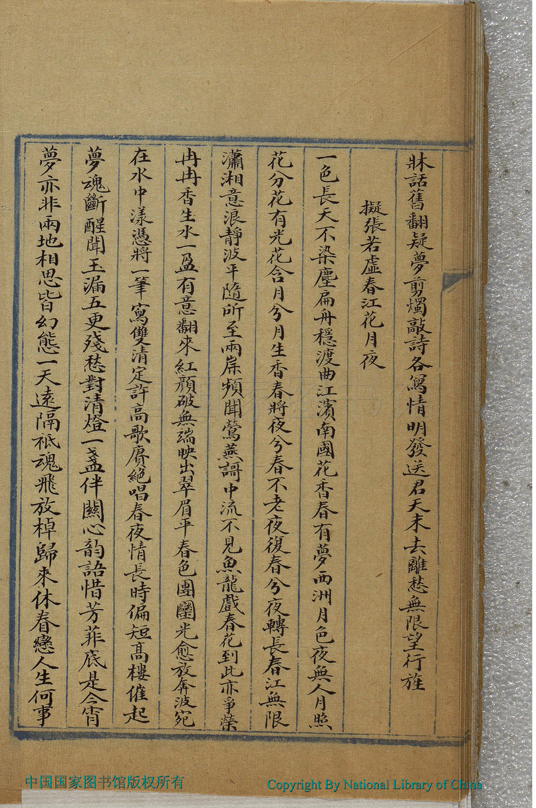 牀話舊翻疑夢剪燭敲詩各寫情明發送君天末去離愁無限望行旌
擬張若虛春江花月夜
一色長天不染塵扁舟穩渡曲江濱南國花香春有夢西洲月色夜無人月照
花分花有光花含月兮月生香春將夜兮春不老夜復春兮夜轉長春江無限
瀟湘意浪靜波平隨所至兩岸頻聞鶯燕謌中流不見魚龍戲春花到此亦爭榮
冉冉香生水一盈有意翻來紅顏破無端映出翠眉平春色團圞光愈放奔波宛
在水中漾憑將一筆寫雙清定許高歌賡絕唱春夜情長時偏短高樓催起
夢魂斷醒聞玉漏五更殘愁對清燈一盞伴關心韵語惜芳菲底是今宵
夢亦非兩地相思皆幻態一天遠隔祗魂飛放棹歸來休眷戀人生何事
中国国家图书馆版权所有
Copyright By National Library of China